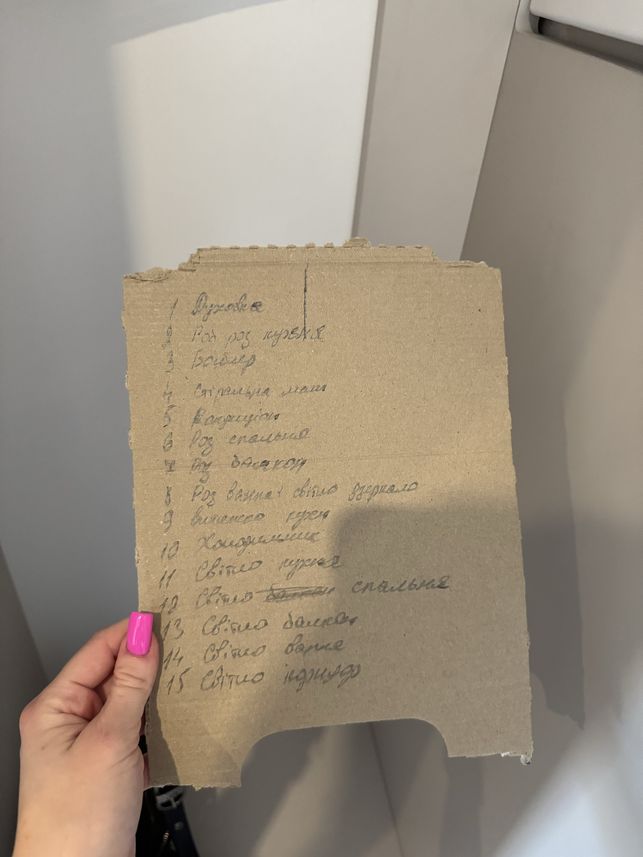 1 Духовка
2 Роб роз кухня
3 Бойлер
4 Стіральна маш
5 Кондиціон
6 Роз спальня
7 Роз балкон
8 Роз ванна і світло дзеркало
9 витяжка кухн
10 Холодильник
11 Світло кухня
12 Світло спальня
13 Світло балкон
14 Світло ванна
15 Світло